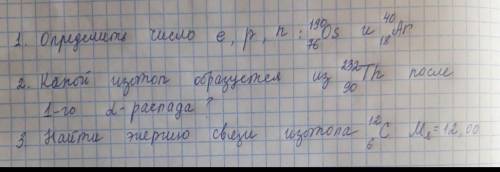 1. Определите число e, p, n : ¹⁹⁰₇₆Os и ⁴⁰₁₈Ar
2. Какой изотоп образуется из ²³²₉₀Th после
1-го α-распада ?
3. Найти энергию связи изотопа ¹²₆C Mя=12,00